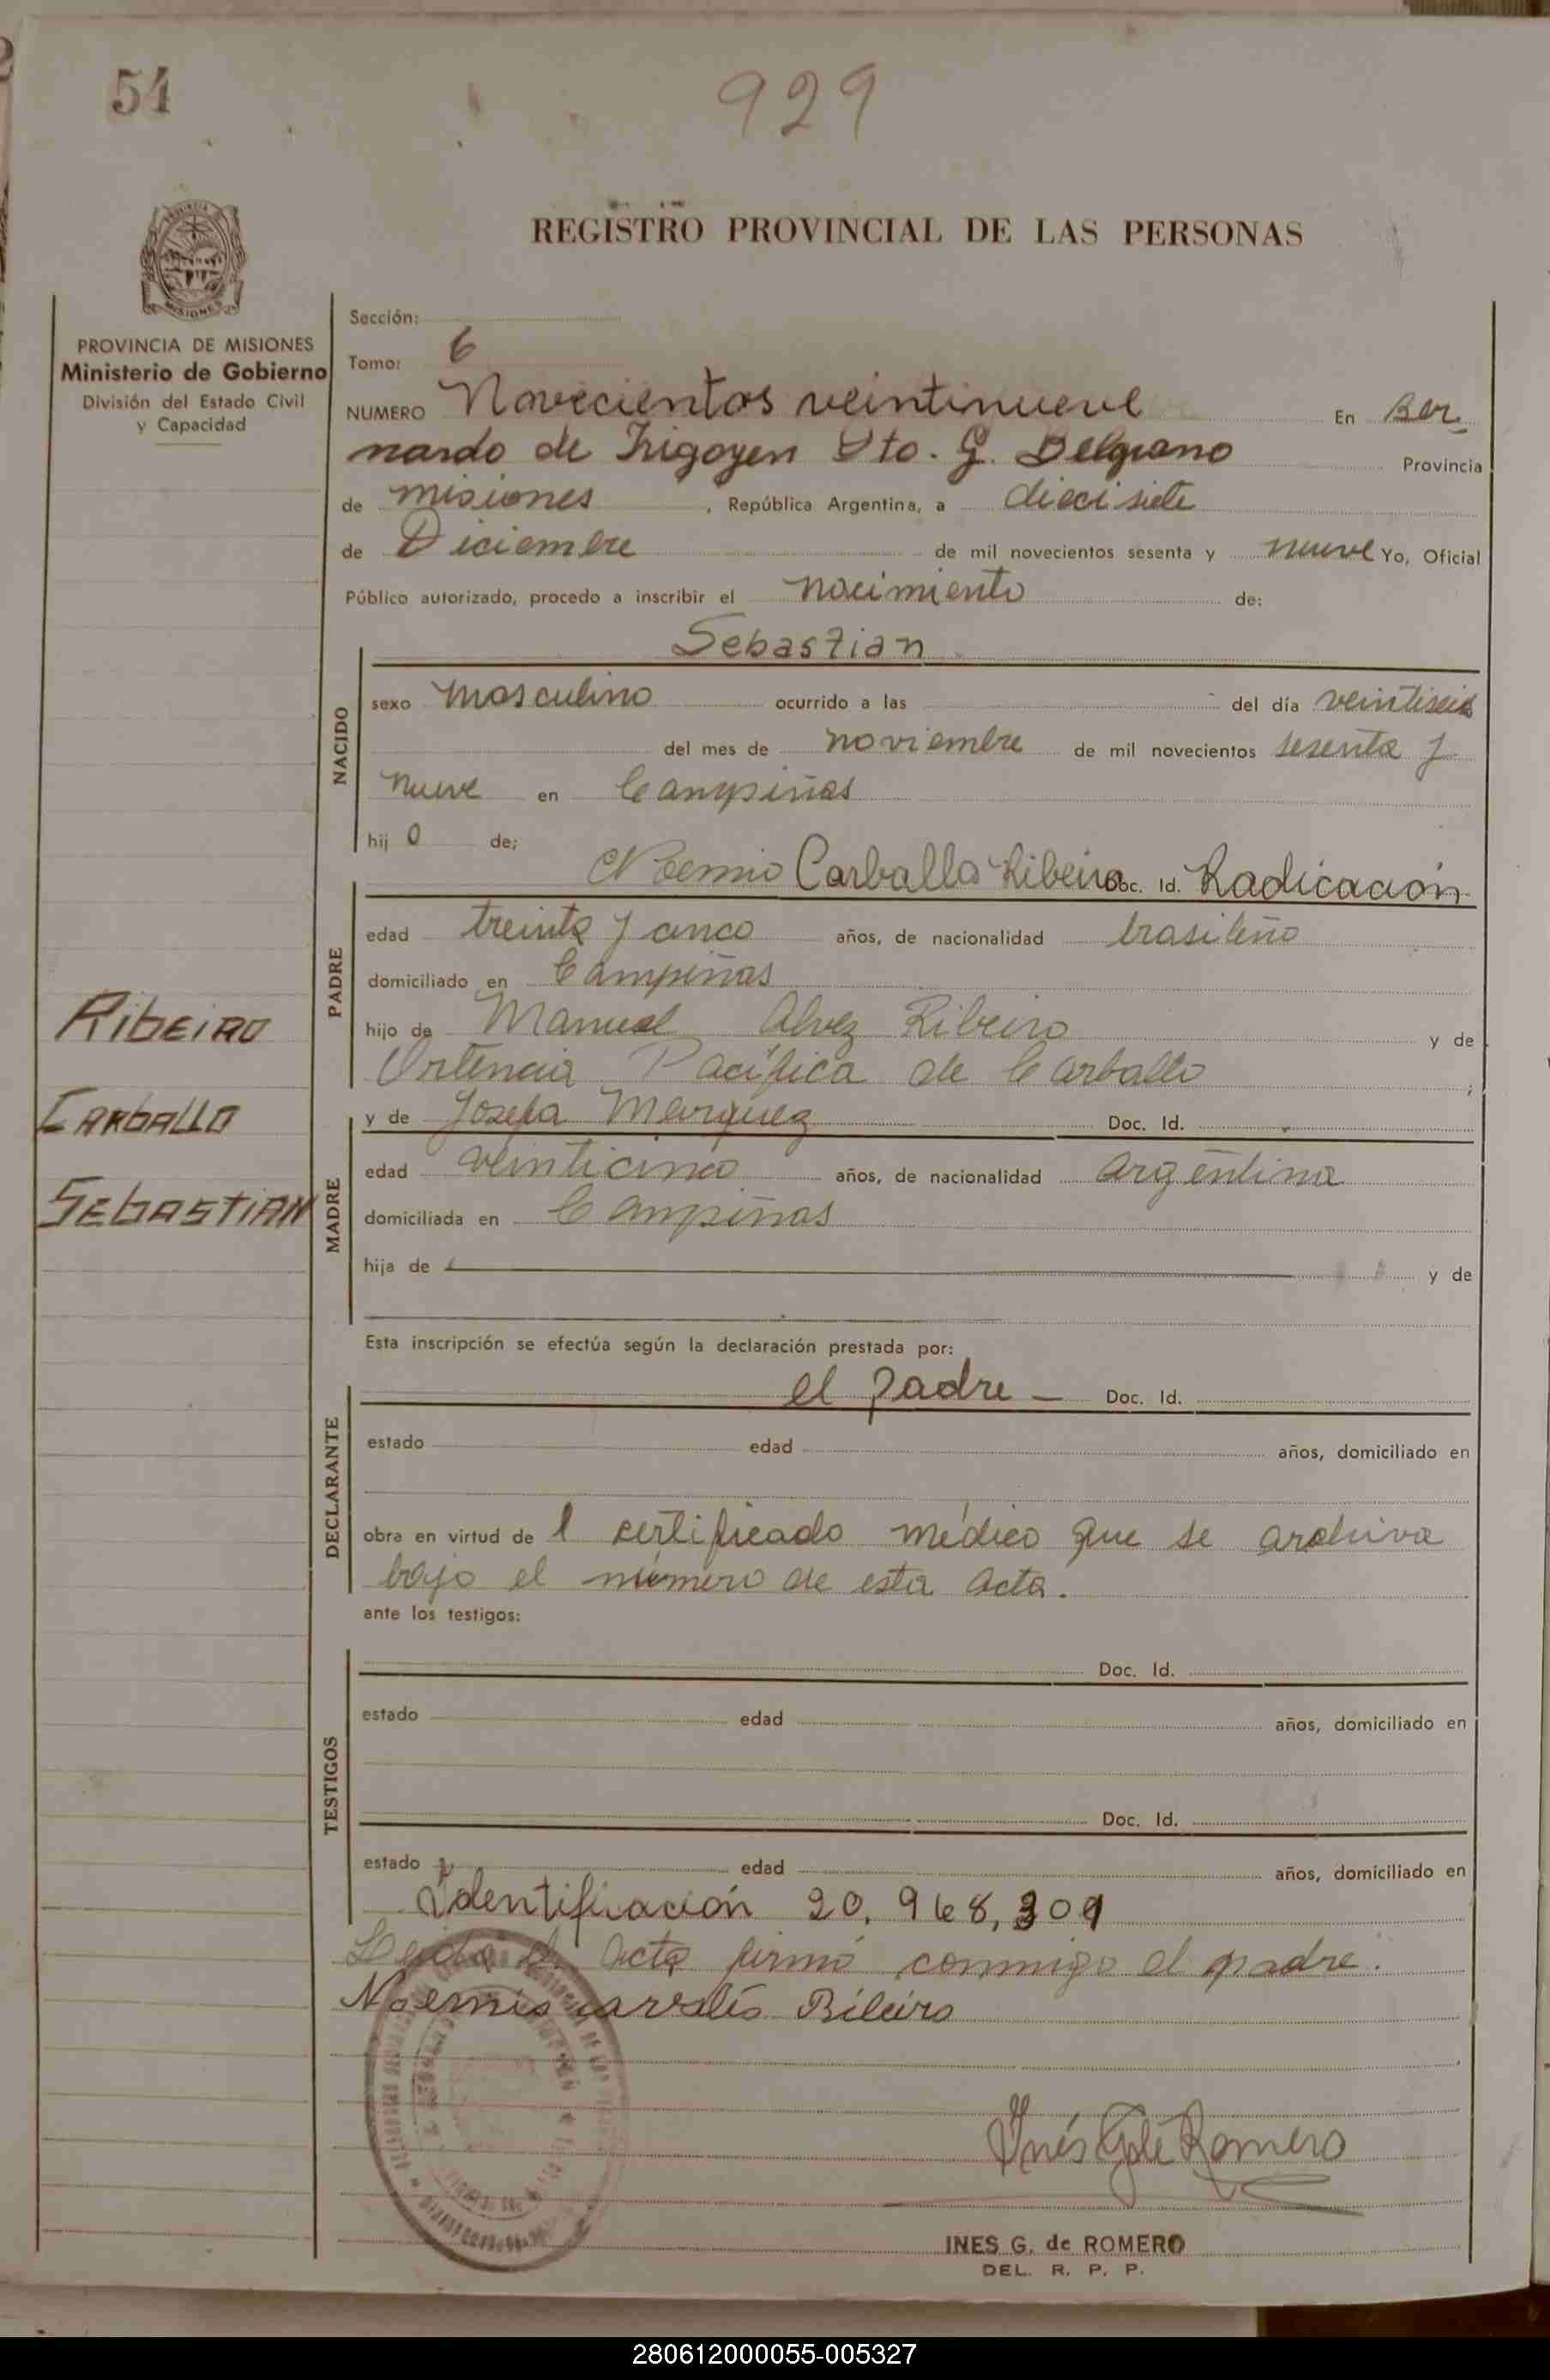 54
929
REGISTRO PROVINCIAL DE LAS PERSONAS
PROVINCIA DE MISIONES
Ministerio de Gobierno
División del Estado Civil
y Capacidad
Sección:
Tomo: 6
NUMERO Novecientos veintinueve En Ber
nardo de Irigoyen Dto. G. Belgrano Provincia
de misiones, República Argentina, a diecisiete
de Diciembre de mil novecientos sesenta y nueve Yo, Oficial
Público autorizado, procedo a inscribir el nacimiento de:
Sebastian
NACIDO
sexo masculino ocurrido a las del día veintiseis
del mes de noviembre de mil novecientos sesenta y
nueve en Campiñas
hij o de;
Noemio Carballo Ribeiro Doc. Id. Radicación
PADRE
edad treinta y cinco años, de nacionalidad brasileño
domiciliado en Campiñas
hijo de Manuel Alvez Ribeiro y de
Ortencia Pacífica de Carballo;
y de Josefa Marquez Doc. Id.
MADRE
edad veinticinco años, de nacionalidad argentina
domiciliada en Campiñas
hija de y de
Ribeiro
Carballo
Sebastian
Esta inscripción se efectúa según la declaración prestada por:
el padre — Doc. Id.
DECLARANTE
estado edad años, domiciliado en
obra en virtud de 1 certificado médico que se archiva
bajo el número de esta acta.
ante los testigos:
Doc. Id.
TESTIGOS
estado edad años, domiciliado en
Doc. Id.
estado edad años, domiciliado en
Identificación 20,968,309
Leida el Acta firmó conmigo el padre.
Noemio Ribeiro
Inés G. de Romero
INES G. de ROMERO
DEL. R. P. P.
280612000055-005327